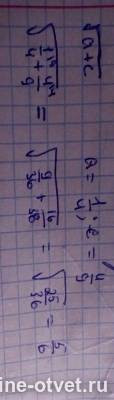 √a+c    a = 1/4; c = 4/9
√1/4 + 4/9 = √9/36 + 16/36 = √25/36 = 5/6
ine-otvet.ru